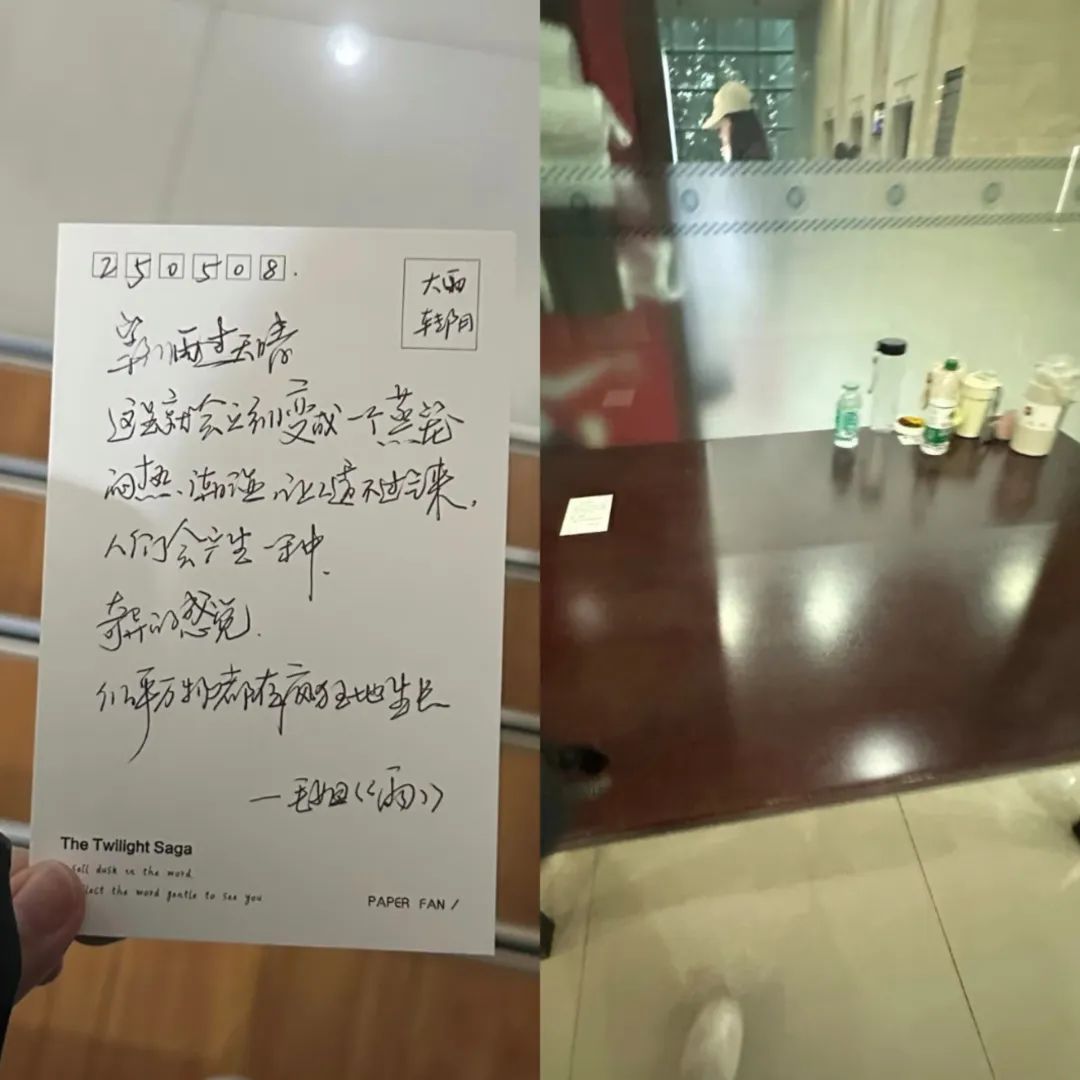 250508.
大雨
转阴
等雨过天晴
这里就会立刻变成一个蒸笼
闷热、潮湿、让人喘不过气来,
人们会产生一种.
奇异的感觉.
似乎万物都在疯狂地生长
—毛姆《雨》
The Twilight Saga
sell dusk in the word,
lect the word gentle to see you
PAPER FAN /